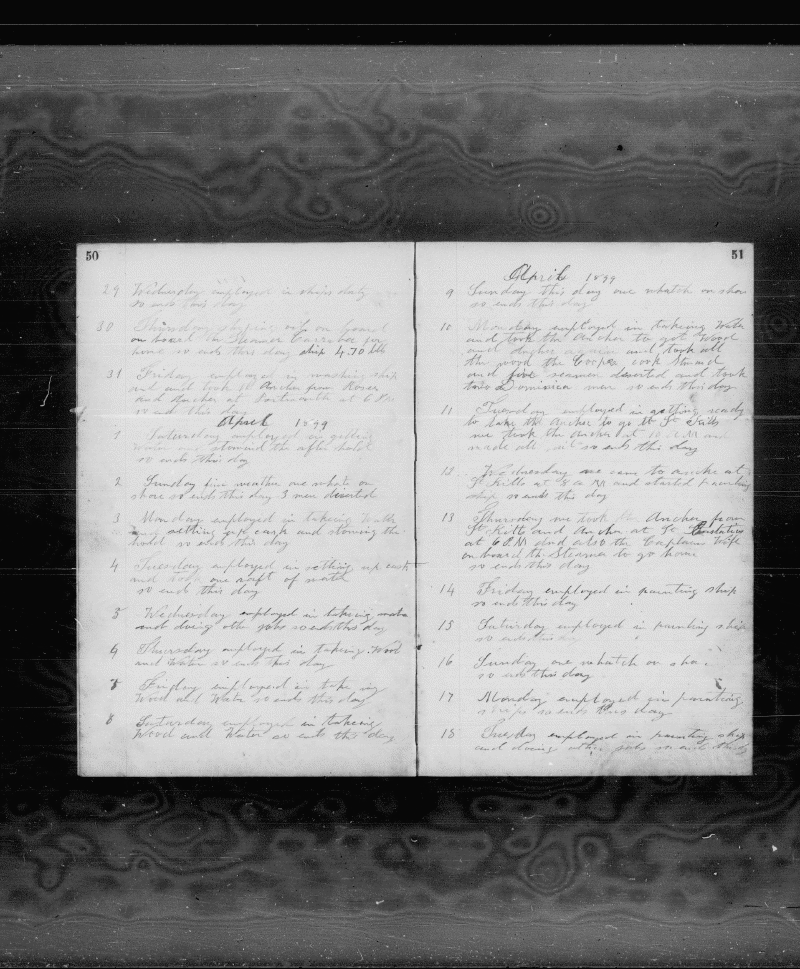 50
29 Wednesday employed in ships duty
so ends this day
30 Thursday shiping oil on board
on board in Steamer for
home so ends this day ship 470 bbl
31 Friday employed in washing ship
and took Anchor from Roseau
and Anchor at Portsmouth at 6 P.M.
so ends this day
April 1899
1 Saturday employed in getting
water and stowed the after hold
so ends this day
2 Sunday fine weather one whatc on
shore so ends this day 3 men diserted
3 Monday employed in takeing Water
and setting up cask and stowing the
hold so ends this day
4 Tuesday employed in setting up cask
and took one raft of water
so ends this day
5 Wednesday employed in takeing water
and doing other jobs so ends this day
6 Thursday employed in takeing Wood
and Water so ends this day
7 Friday employed in take ing
Wood and Water so ends this day
8 Saturday employed in takeing
Wood and Water so ends this day
51
April 1899
9 Sunday this day one whatch on shore
so ends this day
10 Monday employed in takeing Water
and took the Anchor to got Wood
and and took all
the wood the Cooper cook Stuard
and five seamen diserted and took
two Dominica men so ends this day
11 Tuesday employed in getting ready
to take the Anchor to go to St Kitts
we took the Anchor at 10 A M and
made all sail so ends this day
12 Wednesday we came to anchor at
St Kitts at 8 a M and started painting
ship so ends this day
13 Thursday we took the Ancher from
St Kitts and Ancher at St Eustatius
at 6 P.M and also the Captain Wife
on board the Steamer to go home
so ends this day
14 Friday employed in painting ship
so ends this day
15 Saturday employed in painting ship
so ends this day
16 Sunday one whatch on shore
so ends this day
17 Monday employed in painting
ship so ends this day
18 Tuesday employed in painting ship
and doing other jobs so ends this day